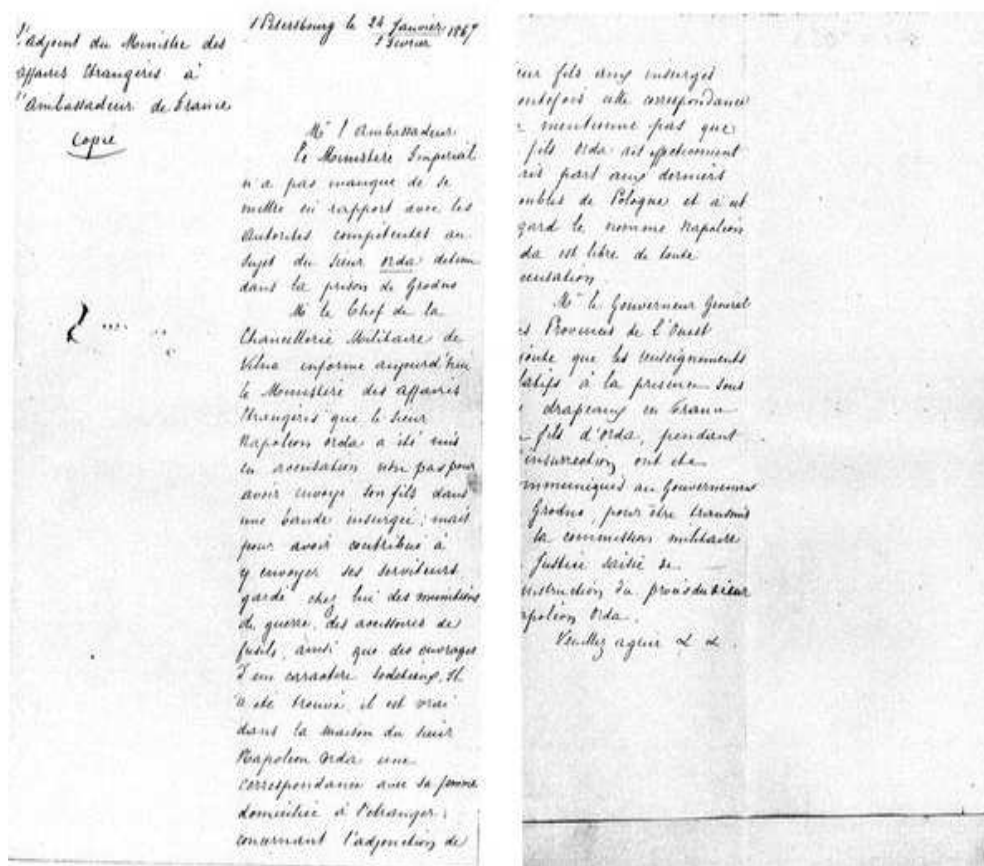 l'adjoint du Ministre des
affaires Etrangères à
l'Ambassadeur de France
Copie
St Petersbourg le 24 Janvier 1867
5 Fevrier
Mr l'Ambassadeur
le Ministère Imperial
n'a pas manqué de se
mettre en rapport avec les
Autorités compétentes au
sujet du Sieur Orda detenu
dans la prison de Grodno
Mr le Chef de la
Chancellerie Militaire de
Vilna informe aujourd'hui
le Ministère des affaires
Etrangères que le Sieur
Napoléon Orda a été mis
en accusation non pas pour
avoir envoyé son fils dans
une bande insurgée, mais
pour avoir contribué à
y envoyer ses serviteurs
gardé chez lui des munitions
de guerre, des accessoires de
fusils, ainsi que des ouvrages
d'un caractère séditieux. Il
a été trouvé, il est vrai
dans la maison du Sieur
Napoléon Orda une
correspondance avec sa femme
domiciliée à l'étranger,
concernant l'adjonction de
eur fils aux insurgés
outefois cette correspondance
mentionne pas que
fils Orda ait effectivement
ris part aux derniers
oubles de Pologne et à cet
gard le nommé Napoléon
da est libre de toute
ccusation.
Mr le Gouverneur General
es Provinces de l'Ouest
joute que les renseignements
latifs à la présence sous
drapeaux en France
fils d'Orda, pendant
'insurrection, ont été
mmuniqués au Gouvernement
Grodno, pour être transmis
la commission militaire
Justice saisie de
instruction du procès du Sieur
apoléon Orda.
Veuillez agréer & &.